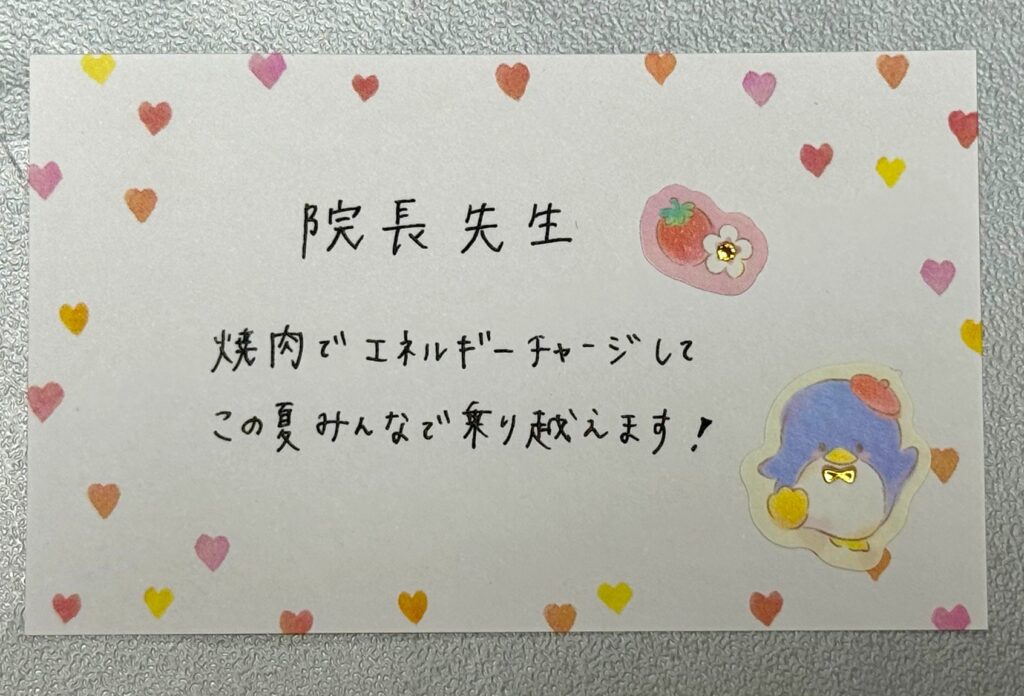 院長先生
焼肉でエネルギーチャージして
この夏みんなで乗り越えます!